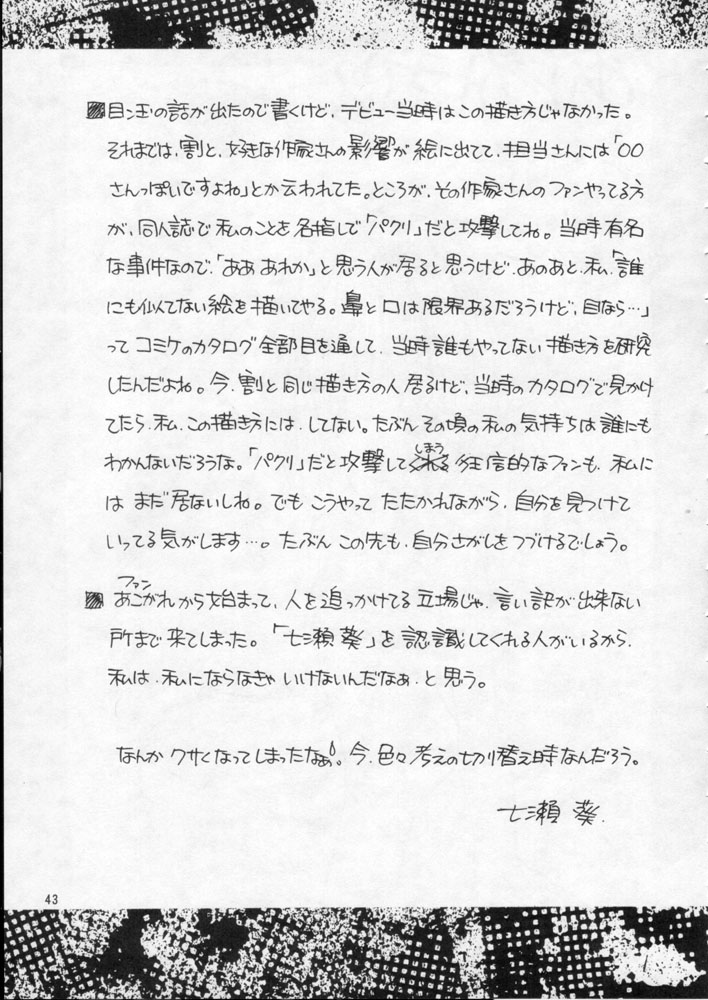 目ン玉の話が出たので書くけど、デビュー当時はこの描き方じゃなかった。
それまでは、割と、好きな作家さんの影響が絵に出てて、担当さんには「○○
さんっぽいですよね」とか云われてた。ところが、その作家さんのファンやってる方
が、同人誌で私のことを名指しで「パクリ」だと攻撃してね。当時有名
な事件なので、「ああ あれか」と思う人が居ると思うけど、あのあと、私、「誰
にも似てない絵を描いてやる。鼻と口は限界あるだろうけど、目なら…」
って コミケのカタログ全部目を通して、当時誰もやってない描き方を研究
したんだよね。今、割と同じ描き方の人居るけど、当時のカタログで見かけ
てたら、私、この描き方には、してない。たぶん その頃の私の気持ちは誰にも
わかんないだろうな。「パクリ」だと攻撃してしまう狂信的なファンも、私に
は まだ居ないしね。でも こうやって たたかれながら、自分を見つけて
いってる気がします…。たぶん この先も、自分さがしをつづけるでしょう。
ファン
あこがれから始まって、人を追っかけてる立場じゃ、言い訳が出来ない
所まで来てしまった。「七瀬葵」を認識してくれる人がいるから、
私は、私にならなきゃ いけないんだなぁ、と思う。
なんか クサくなってしまったなぁ。今、色々考えの切り替え時なんだろう。
七瀬 葵.
43